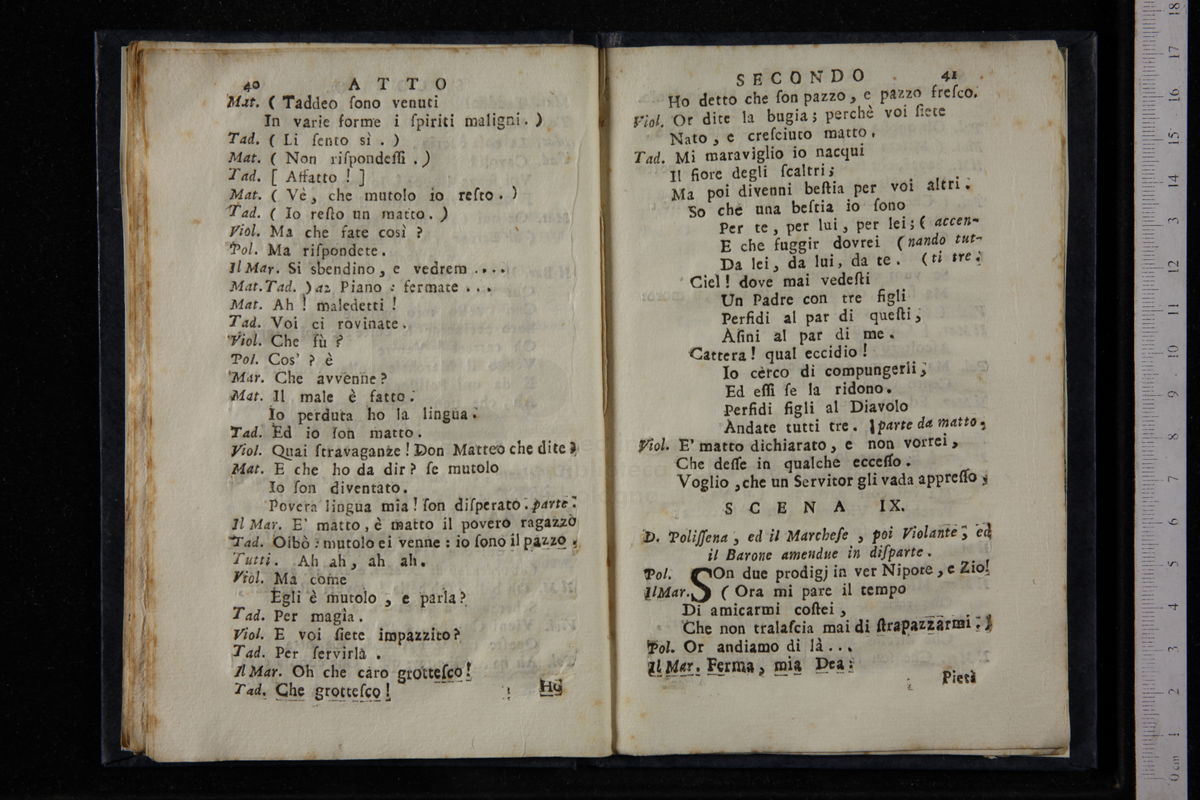 40 ATTO
Mat. ( Taddeo ſono venuti
In varie forme i ſpiriti maligni. )
Tad. ( Li ſento sì . )
Mat. ( Non riſpondeſſi . )
Tad. [ Affatto ! ]
Mat. ( Vè, che mutolo io reſto. )
Tad. ( Io reſto un matto. )
Viol. Ma che fate così ?
Pol. Ma riſpondete.
Il Mar. Si sbendino, e vedrem ....
Mat. Tad. ) a2 Piano : fermate ...
Mat. Ah ! maledetti !
Tad. Voi ci rovinate.
Viol. Che fù ?
Pol. Cos' ? è
Mar. Che avvenne?
Mat. Il male è fatto.
Io perduta ho la lingua.
Tad. Ed io ſon matto.
Viol. Quai ſtravaganze! Don Matteo che dite?
Mat. E che ho da dir? ſe mutolo
Io ſon diventato.
Povera lingua mia! ſon diſperato. parte.
Il Mar. E' matto, è matto il povero ragazzo
Tad. Oibò : mutolo ei venne : io ſono il pazzo.
Tutti. Ah ah, ah ah.
Viol. Ma come
Egli è mutolo , e parla?
Tad. Per magìa.
Viol. E voi ſiete impazzito?
Tad. Per ſervirla .
Il Mar. Oh che caro grotteſco!
Tad. Che grotteſco!
Ho
SECONDO 41
Ho detto che ſon pazzo, e pazzo freſco.
Viol. Or dite la bugia; perchè voi ſiete
Nato, e creſciuto matto.
Tad. Mi maraviglio io nacqui
Il fiore degli ſcaltri;
Ma poi divenni beſtia per voi altri.
So che una beſtia io ſono
Per te, per lui, per lei; ( accen-
E che fuggir dovrei (nando tut-
Da lei, da lui, da te. (ti tre.
Ciel! dove mai vedeſti
Un Padre con tre figli
Perfidi al par di queſti,
Aſini al par di me.
Cattera! qual eccidio!
Io cerco di compungerli,
Ed eſſi ſe la ridono.
Perfidi figli al Diavolo
Andate tutti tre. )parte da matto.
Viol. E' matto dichiarato, e non vorrei,
Che deſſe in qualche ecceſſo.
Voglio, che un Servitor gli vada appreſſo.
SCENA IX.
D. Poliſſena, ed il Marcheſe, poi Violante, ed
il Barone amendue in diſparte.
Pol. SOn due prodigj in ver Nipote, e Zio!
Il Mar. ( Ora mi pare il tempo
Di amicarmi coſtei,
Che non tralaſcia mai di ſtrapazzarmi. )
Pol. Or andiamo di là...
Il Mar. Ferma, mia Dea:
Pietà